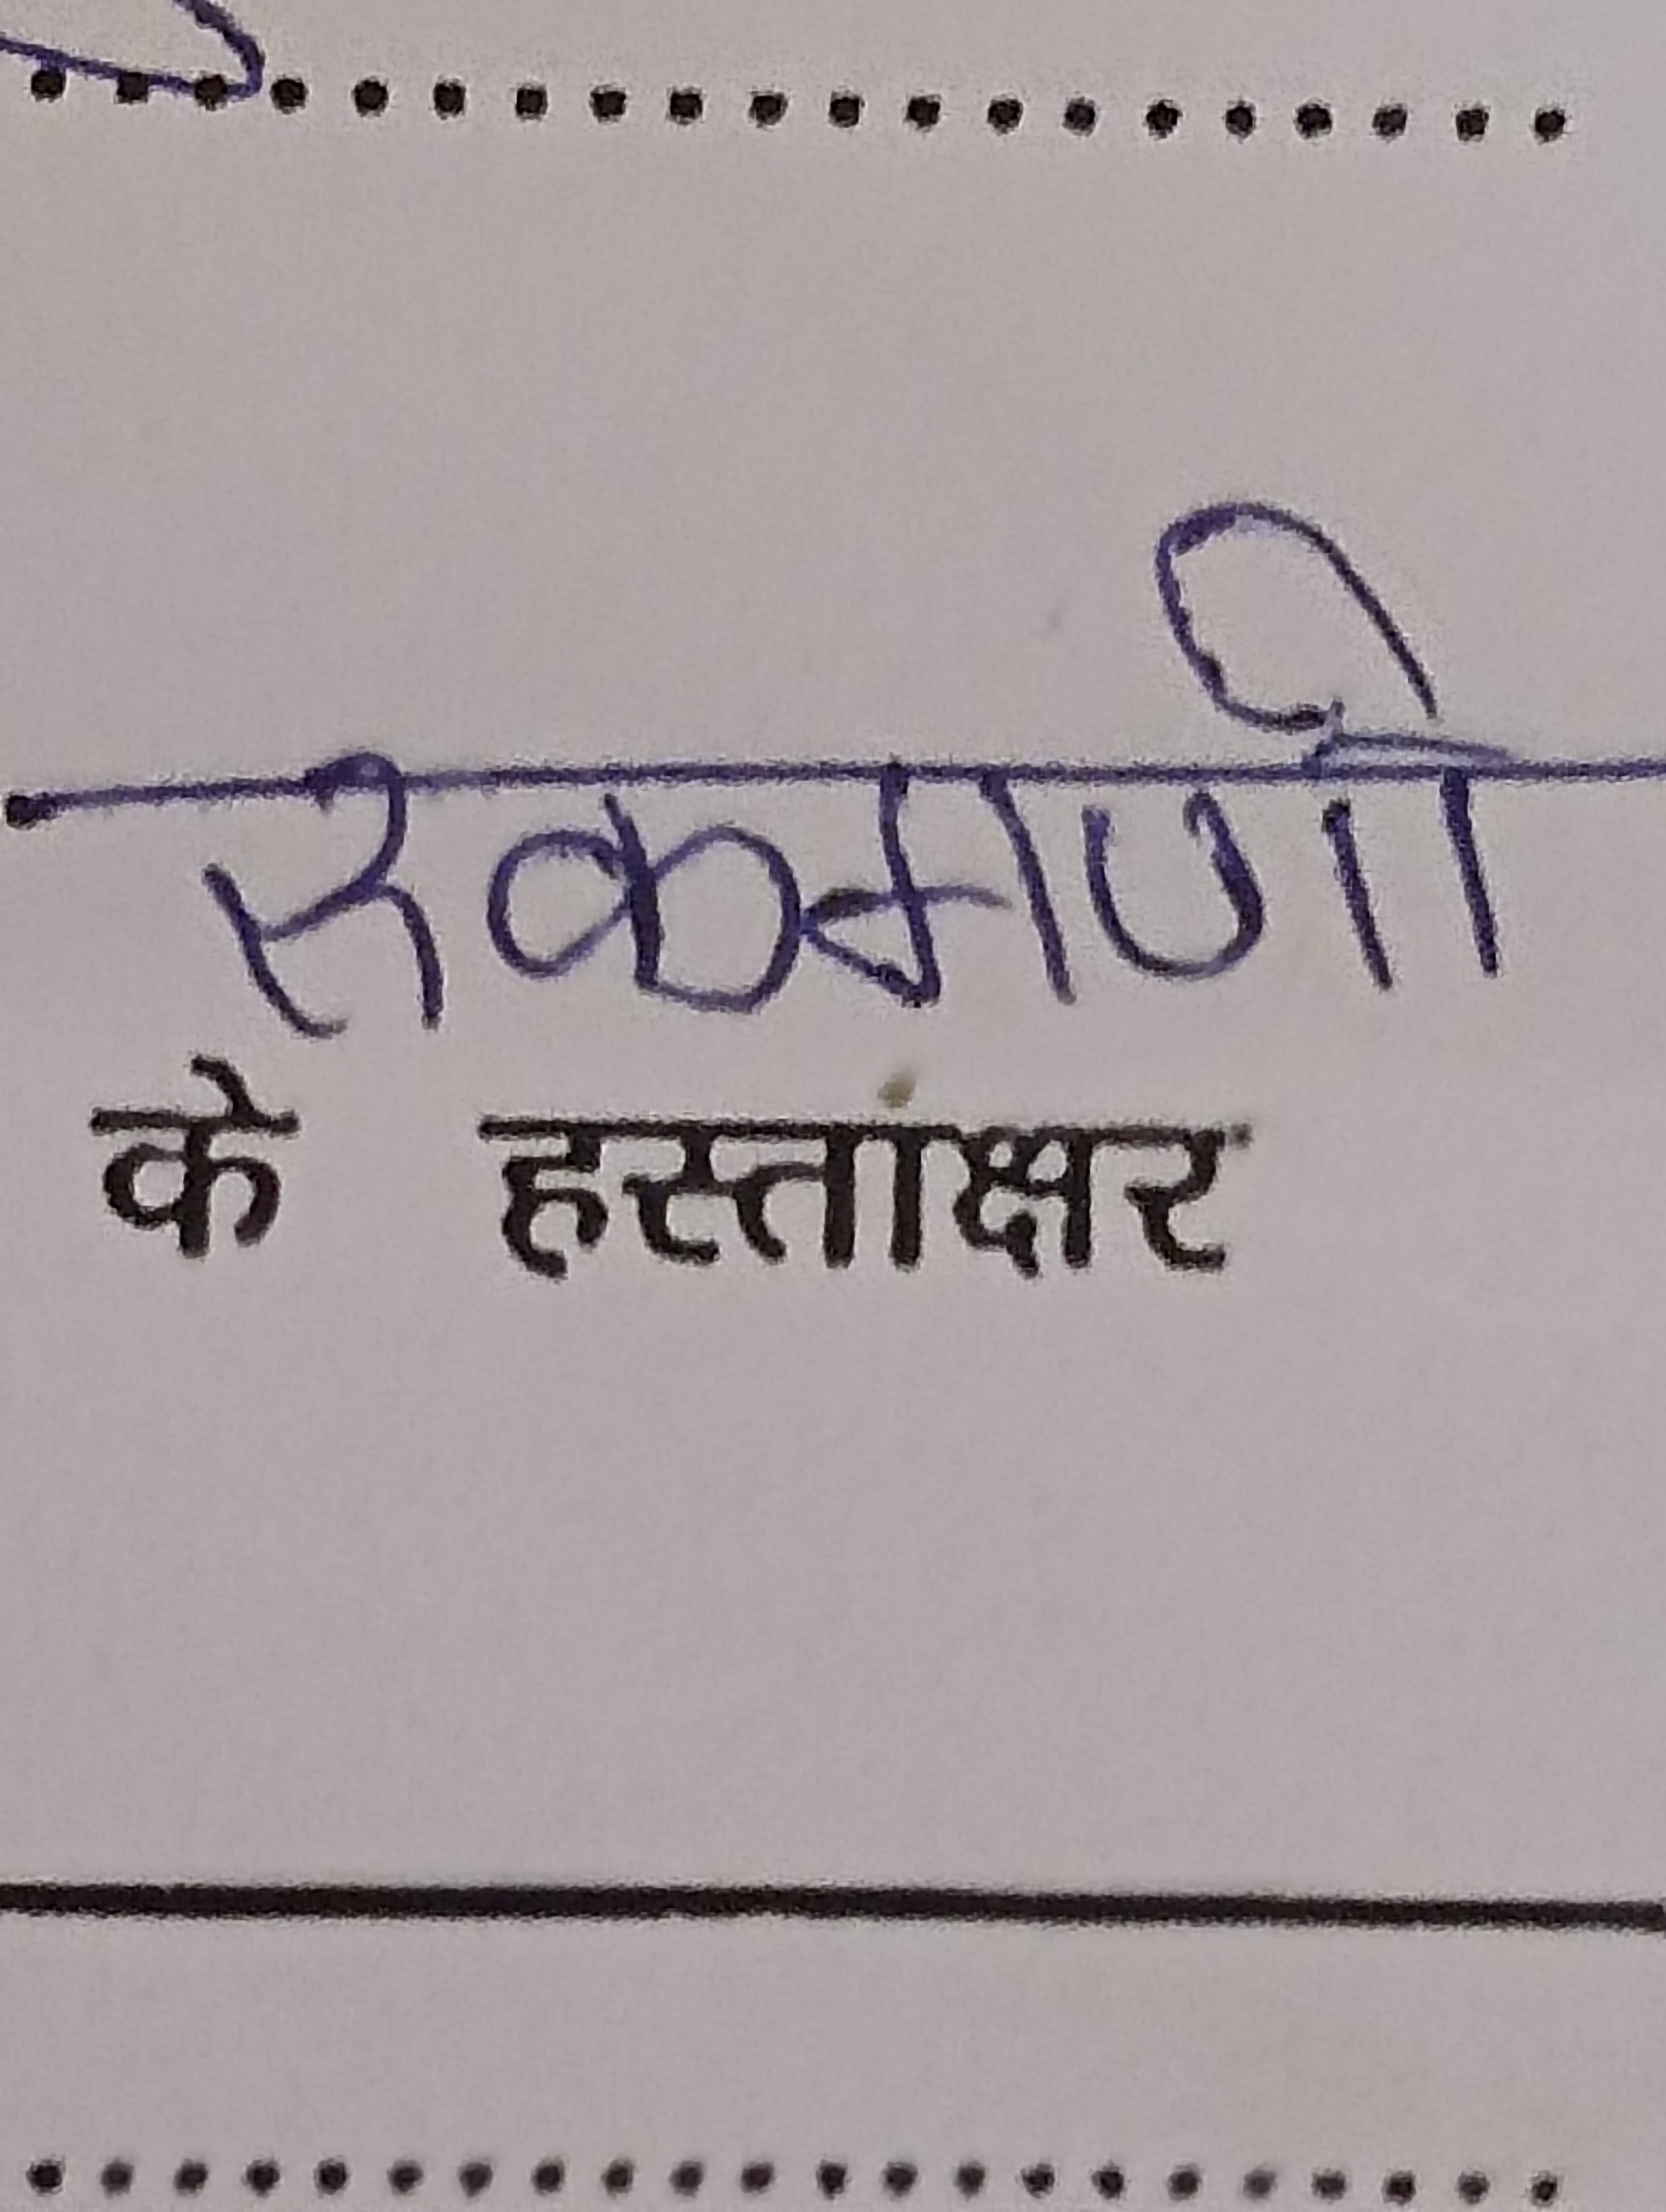 रुकमणी
के हस्तांक्षर